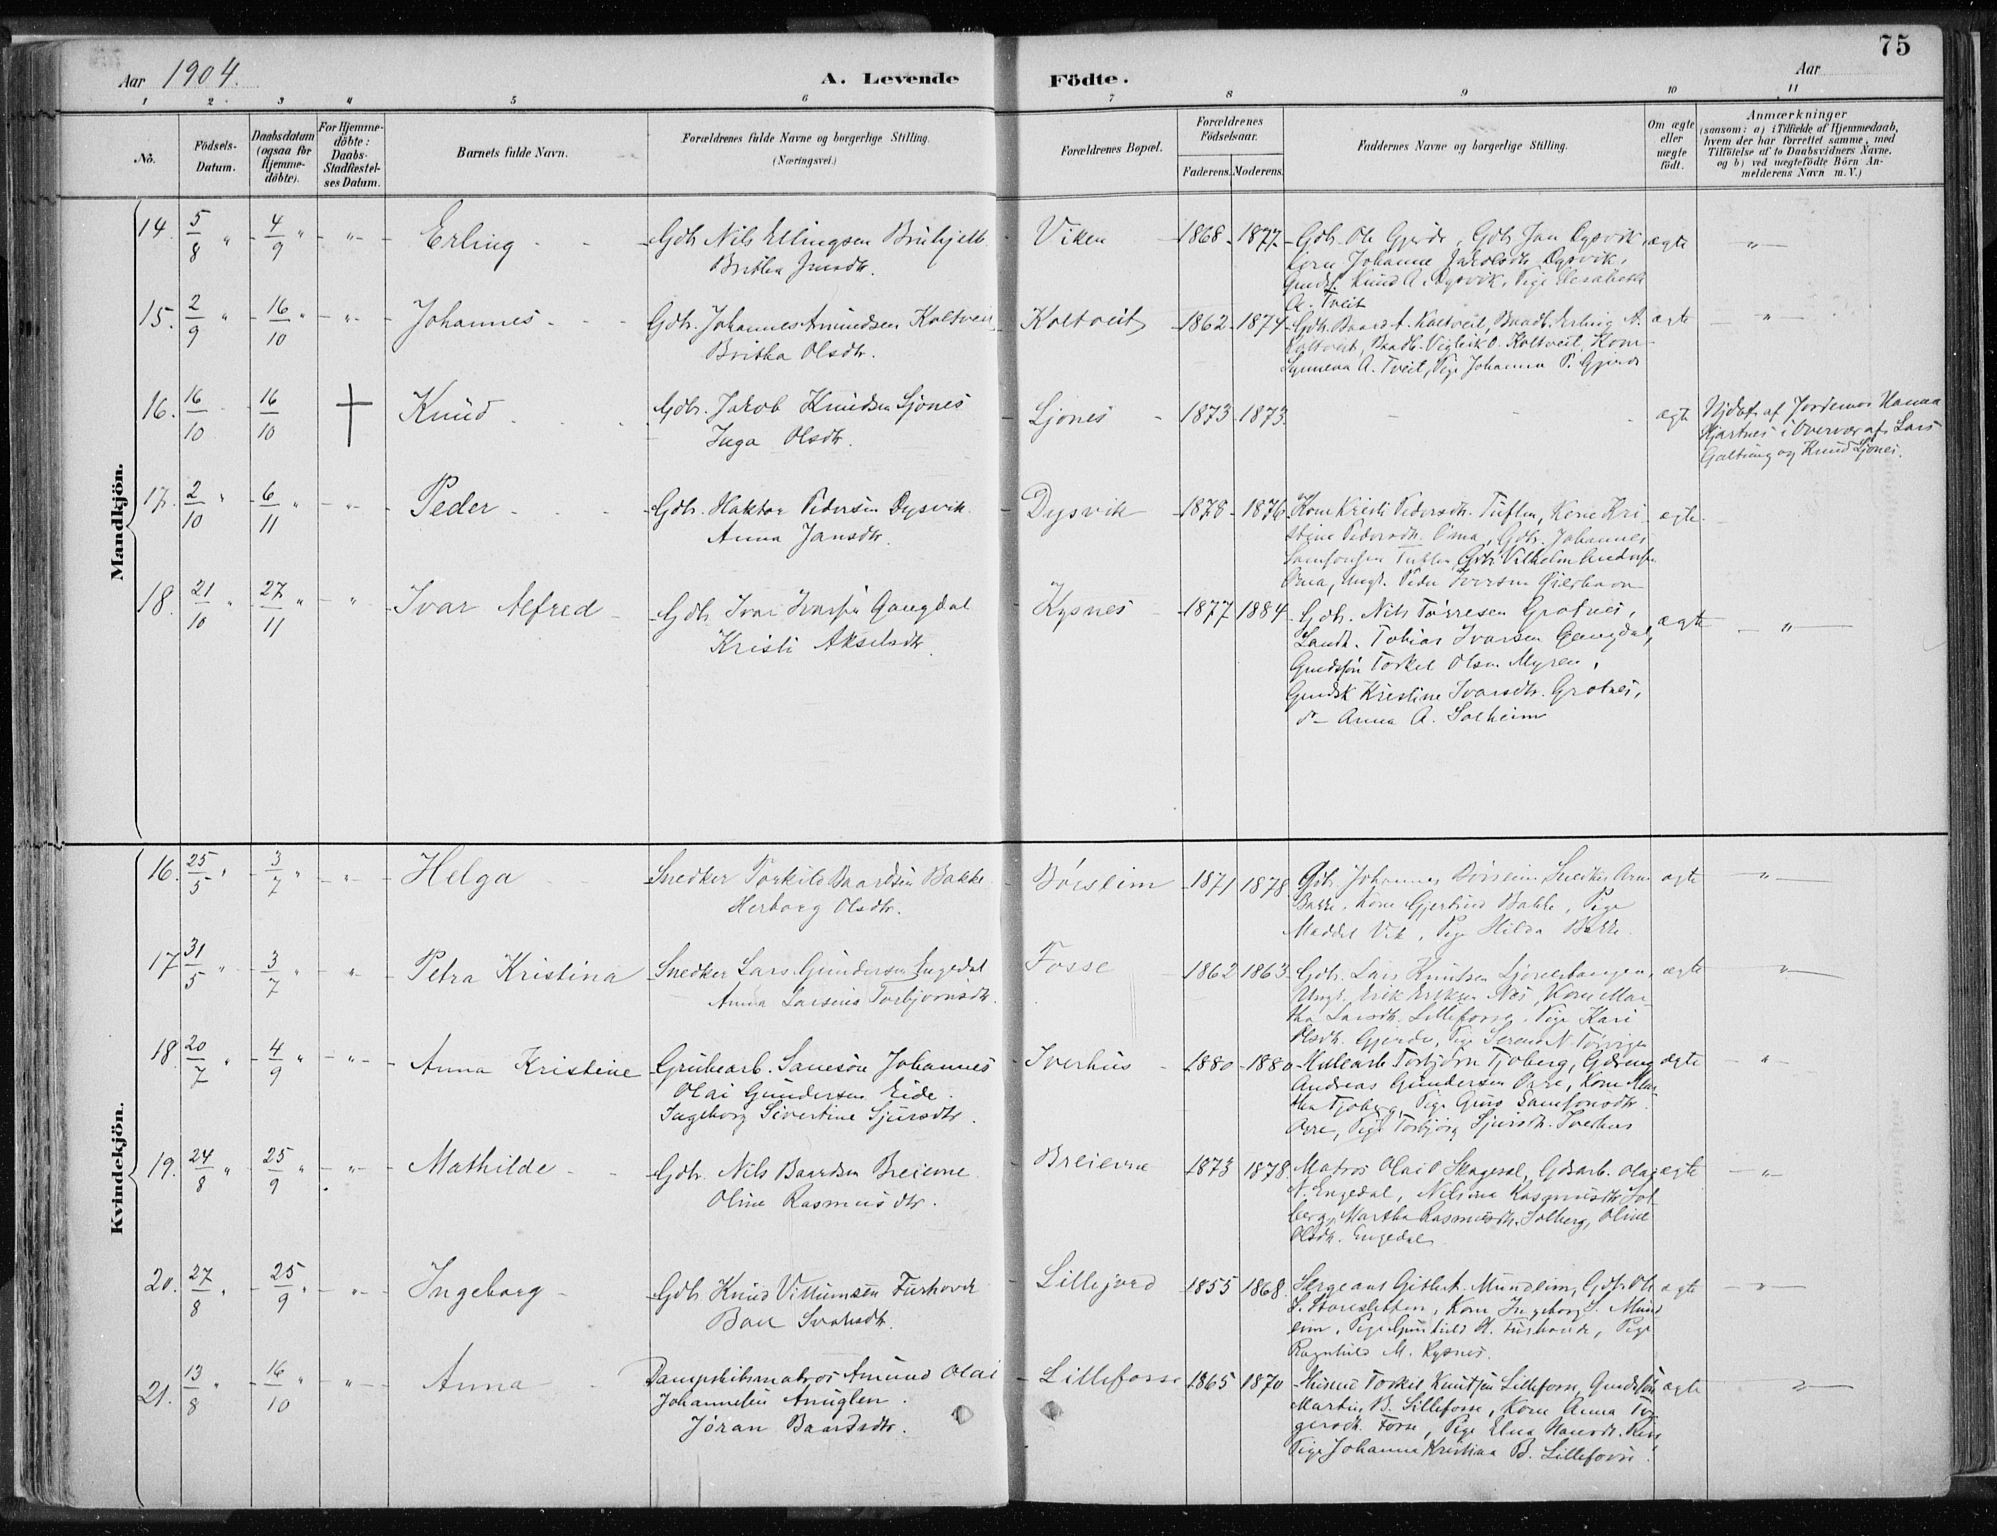 75
Aar 1904.
A. Levende Födte.
Aar
1 2 3 4 5 6 7 8 9 10 11
No.
Födsels-Datum.
Daabsdatum (ogsaa for Hjemme-döbte).
For Hjemme-döbte: Daabs-Stadfæstel-ses Datum.
Barnets fulde Navn.
Forældrenes fulde Navne og borgerlige Stilling.
(Næringsvei.)
Forældrenes Bopæl.
Forældrenes Födselsaar.
Faderens. Moderens.
Faddernes Navne og borgerlige Stilling.
Om ægte eller uægte födt.
Anmærkninger
(saasom: a) i Tilfælde af Hjemmedaab,
hvem der har forrettet samme, med
Tilföielse af to Daabsvidners Navne.
og b) ved uægtefödte Börn An-
melderens Navn m. V.)
Mandkjön.
14. 5/8 " 4/9 " " Erling Gdb. Nils Ellingsen Viken 1868 1877 Gdb. Ole Gjerde, Gdb. Jan Dysvik, ægte "
Britha
Kone Johanne Jakobsdtr. Dysvik,
Knud A. Dysvik, Pige
A. Tveit
15. 2/9 " 16/10 " " Johannes Gdb. Johannes Amundsen Koltveit Koltveit 1862 1874 Gdb. Baard A. Koltveit, Erling A. ægte "
Britha Olsdtr.
Koltveit, O. Koltveit, Kone
Synneva A. Tveit, Pige Johanna P. Gjerde
16. 16/10 16/10 † Knud Gdb. Jakob Knudsen Sjones Sjones 1873 1873 ægte Hjdøbt af Jordemor Hanna
Inga Olsdtr.
i Overvær af Lars
Galtung og Knud Sjones.
17. 2/10 " 6/11 " " Peder Gdb. Haktor Pedersen Dysvik Dysvik 1878 1876 Kone Kristi Pedersdtr. Tuften, Kone Kri- ægte
Anna Jansdtr.
stine Pedersdtr. Oma, Gdb. Johannes
Samsonsen Tuften, Gdb. Vilhelm Andersen
Oma, Ungk. Peder Iversen
18. 21/10 " 27/11 " " Ivar Alfred Gdb. Ivar Ivarsen Gangdal Kysnes 1877 1884 Gdb. Nils Tørresen Grotnes, ægte "
Kristi Akselsdtr.
Landh. Tobias Ivarsen Gangdal,
Gmdssøn Torkel Olsen Myren,
Gmdsk Kristine Ivarsdtr. Grotnes,
d– Anna A. Solheim
Kvindekjön.
16. 25/5 " 3/7 " " Helga Snedker Torkild Baardsen Bakke Børsheim 1871 1878 Gdb. Johannes Børsheim Snedker Arne ægte "
Herborg Olsdtr.
Bakke, Kone Gjertrud Bakke, Pige
Maddel Vik, Pige Hilda Bakke.
17 31/5 " 3/7 " " Petra Kristina Snedker Lars Gundersen Engedal Fosse 1862 1863 Gdb. Lars Knutsen Sjonestangen, ægte "
Anna Larsine Torbjørnsdtr.
Ungk. Erik Eriksen Nes, Kone Mar-
tha Larsdtr. Lillefosse, Pige Kari
Olsdtr. Gjerde, Pige Serena N.
18. 20/7 " 4/9 " " Anna Kristine Grubearb. Samson Johannes Iverhus 1880 1880 Torbjørn Tjoberg, ægte "
Olai Gundersen Eide.
Ingeborg Sivertine Sjursdtr.
Andreas Gundersen Øvre, Kone Mar-
tha Tjoberg, Pige Guro Samsonsdtr.
Øvre, Pige Torbjørg Sjursdtr. Iverhus
19. 24/8 " 25/9 " " Mathilde Gdb. Nils Baardsen Breierne Breierne 1873 1878. Matros Olai O Skagesal, Gdsarb. Olai ægte "
Oline Rasmusdtr.
N. Engedal, Nelsine Rasmusdtr. Sol-
berg, Martha Rasmusdtr. Solberg, Oline
Olsdtr. Engedal
20. 27/8 " 25/9 " " Ingeborg Gdb. Knud Villumsen Furhovde Lillejord 1855 1868. Sergeant Gitle A. Mundheim, Gdb. Ole ægte "
S. Storesletten, Kone Ingeborg S. Mund
eim, Pige Gunhild H. Furhovde, Pige
Ragnhild M. Kysnes.
21. 13/8 " 16/10 " " Anna Dampskibsmatros Amund Olai Lillefosse 1865 1870 Husmd Torkil Knutsen Lillefosse, Gmdssøn ægte "
Johannesen Anuglen.
Jøran Baardsdtr.
Martin B. Lillefosse, Kone Anna Tor-
gersdtr. Fosse, Pige Elna Hansdtr.
Pige Johanna Kristina B. Lillefosse.